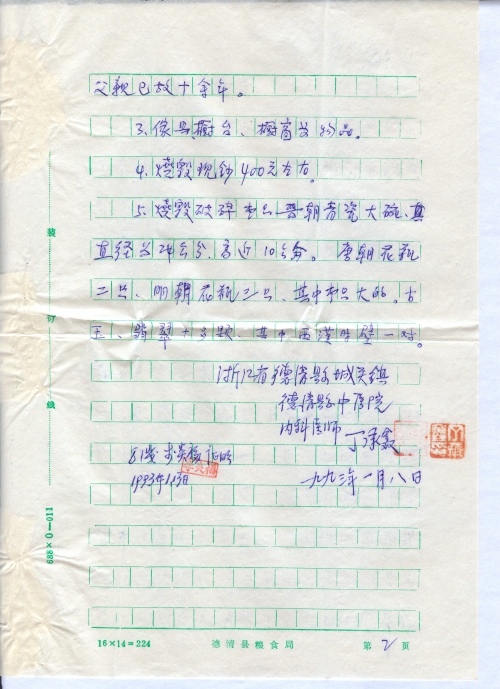 父親已故十余年。
3.像具橱台、橱窗等物品。
4.燒毀现钞400元左右。
5.燒毀破碎 晋朝青瓷大碗,其
直径为24公分,高近10公分。唐朝花瓶
二只、明朝花瓶三只、其中 大的。古
玉、翡翠 颗、其中西漢时壁一对。
浙江省德清縣城关镇
德清縣中医院
内科医师 丁承
81岁 李 证明
1993年1月 日
一九九三年一月八日
装
订
线
688×0—011
16×14=224 德清县粮食局 第2页